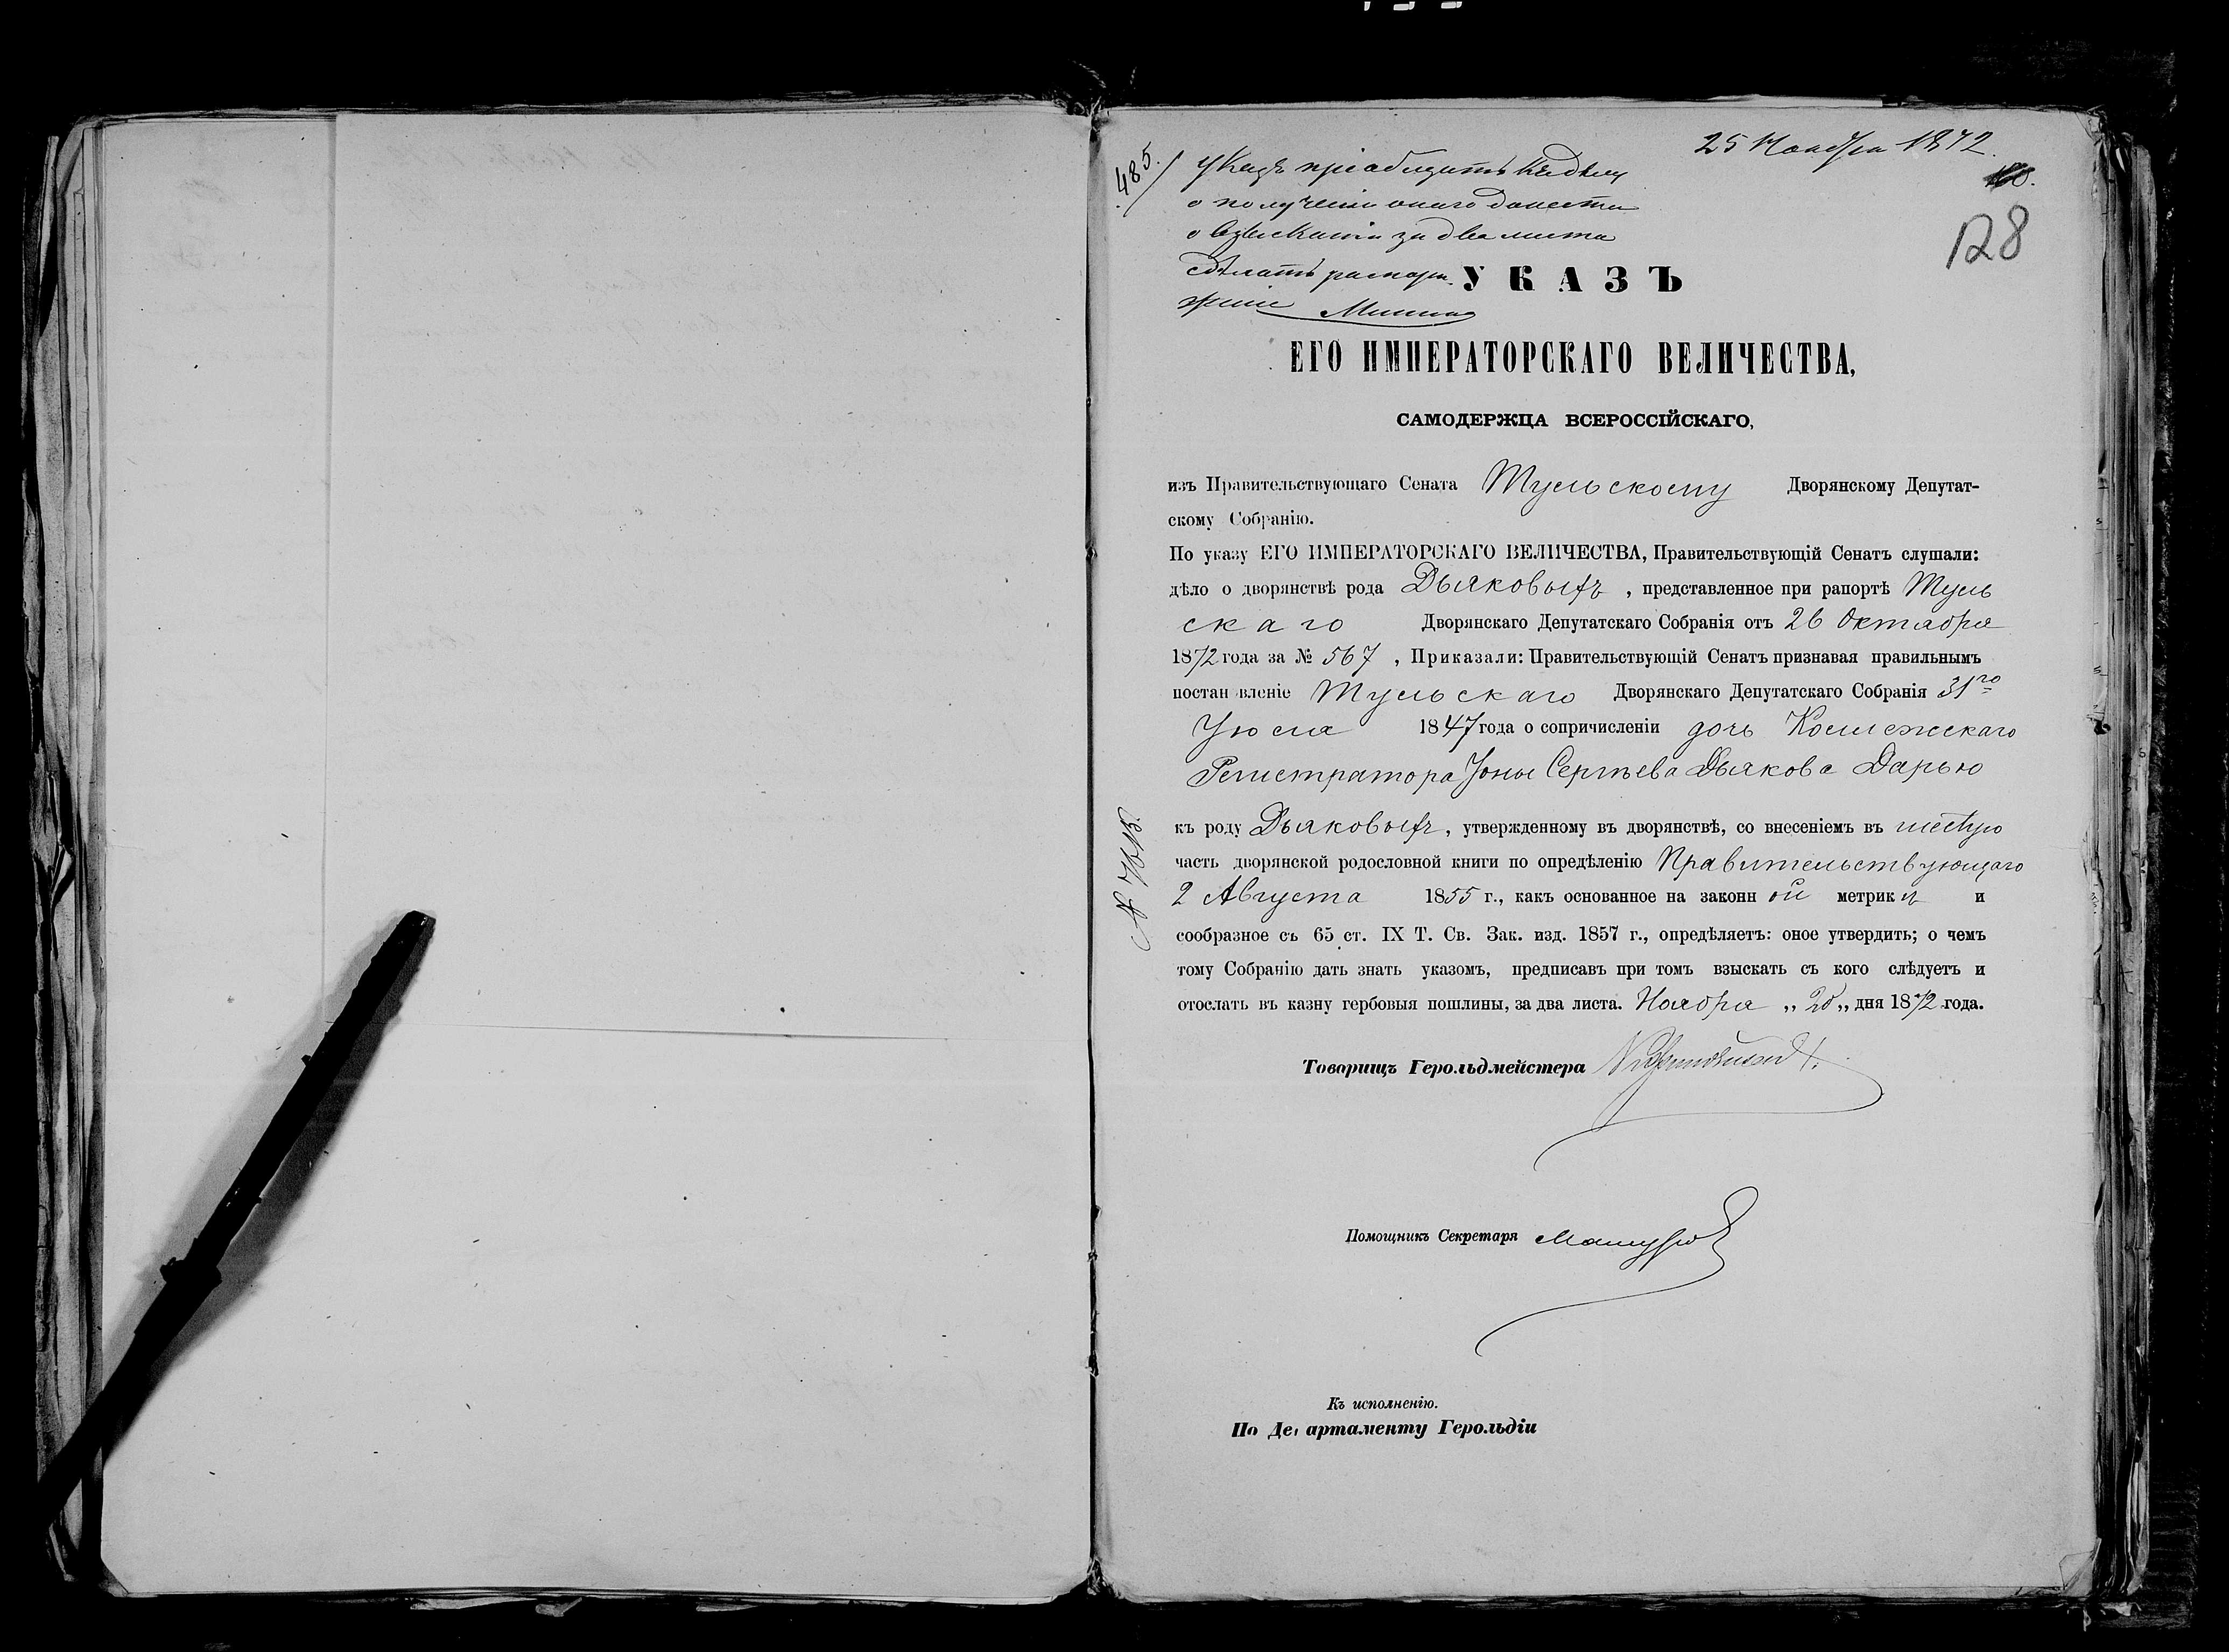 25 Ноября 1872.
485.
Указъ пріобщить къ дѣлу
о полученіи онаго донести
о взысканіи за два листа
сдѣлать распоря-
женіе
128
УКАЗЪ
ЕГО ИМПЕРАТОРСКАГО ВЕЛИЧЕСТВА,
САМОДЕРЖЦА ВСЕРОССІЙСКАГО,
изъ Правительствующаго Сената Тульскому Дворянскому Депутат-
скому Собранію.
По указу ЕГО ИМПЕРАТОРСКАГО ВЕЛИЧЕСТВА, Правительствующій Сенатъ слушали:
дѣло о дворянствѣ рода Дьяковыхъ, представленное при рапортѣ Туль
скаго Дворянскаго Депутатскаго Собранія отъ 26 Октября
1872 года за № 567, Приказали: Правительствующій Сенатъ признавая правильнымъ
постановленіе Тульскаго Дворянскаго Депутатскаго Собранія 31го
Іюля 1847 года о сопричисленіи дочь Коллежскаго
Регистратора Іоны Сергѣева Дьякова Дарью
къ роду Дьяковыхъ, утвержденному въ дворянствѣ, со внесеніемъ въ шестую
часть дворянской родословной книги по опредѣленію Правительствующаго
2 Августа 1855 г., какъ основанное на законной метрикѣ и
сообразное съ 65 ст. IX Т. Св. Зак. изд. 1857 г., опредѣляетъ: оное утвердить; о чемъ
тому Собранію дать знать указомъ, предписавъ при томъ взыскать съ кого слѣдуетъ и
отослать въ казну гербовыя пошлины, за два листа. Ноября „ 20 „ дня 1872 года.
Товарищъ Герольдмейстера
Помощникъ Секретаря
Къ исполненію.
По Департаменту Герольдіи